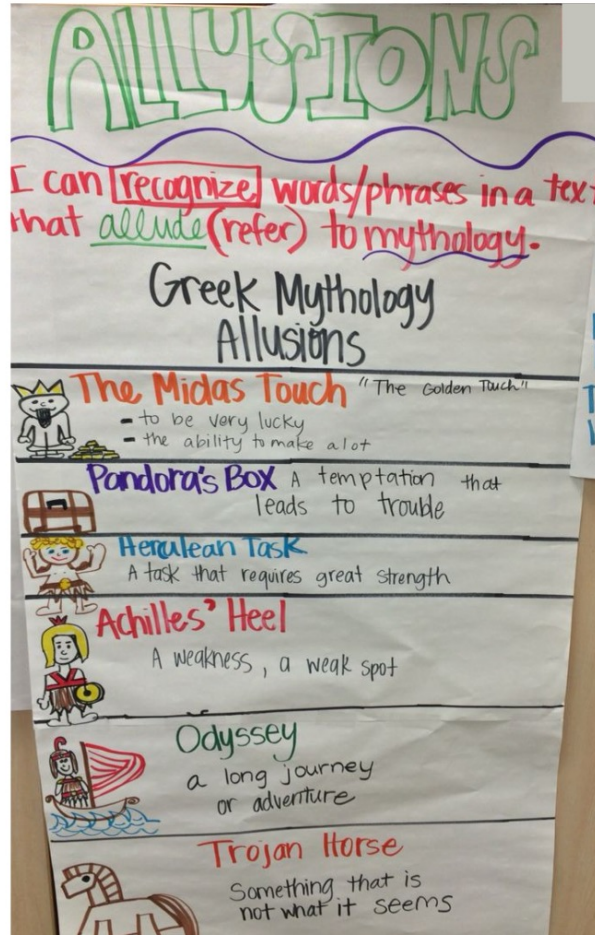 ALLUSIONS
I can recognize words/phrases in a text
that allude (refer) to mythology.
Greek Mythology
Allusions
The Midas Touch "The Golden Touch"
- to be very lucky
- the ability to make a lot
Pandora's Box A temptation that
leads to trouble
Herculean Task
A task that requires great strength
Achilles' Heel
A weakness, a weak spot
Odyssey
a long journey
or adventure
Trojan Horse
Something that is
not what it seems